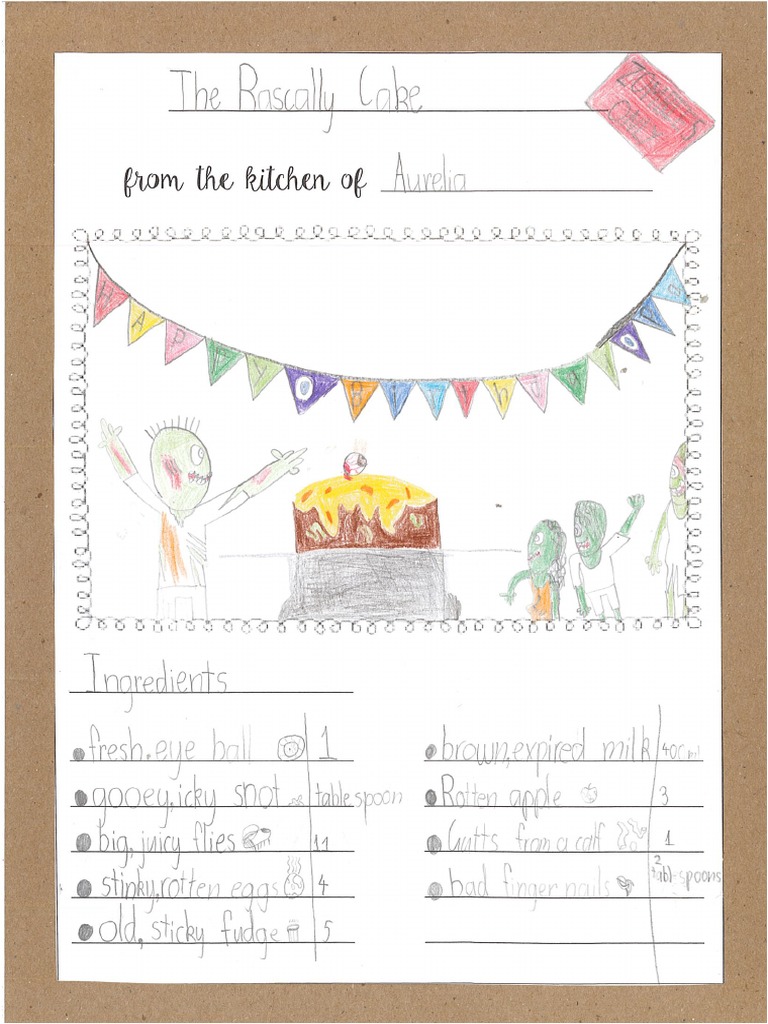 The Rascally Cake
from the kitchen of Aurelia
HAPPY Birthday
Ingredients
fresh, eye ball 1
gooey, icky snot table spoon
big, juicy flies 11
stinky, rotten eggs 4
old, sticky fudge 5
brown, expired milk 400 ml
Rotten apple 3
Gutts from a calf 1
bad finger nails 2 tabl-spoons